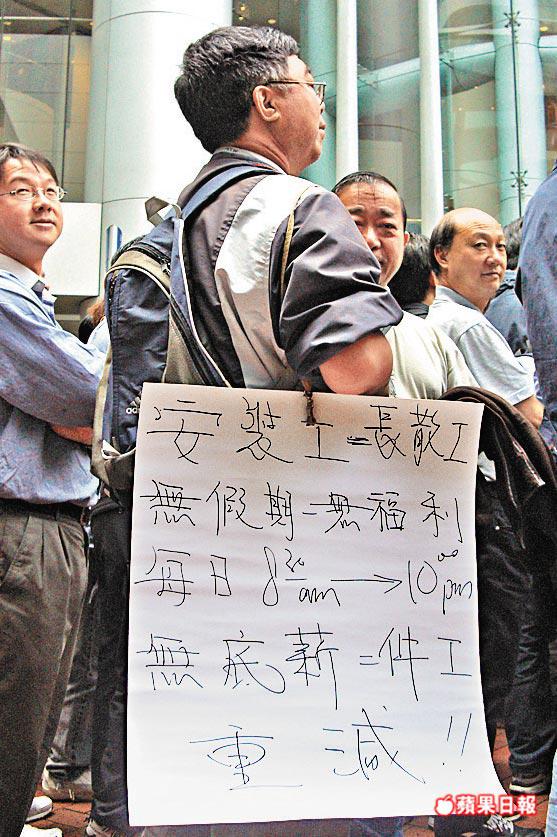 安裝工=長散工
無假期=無福利
每日8³⁰am→10⁰⁰pm
無底薪=件工
重減!!
蘋果日報
adidas